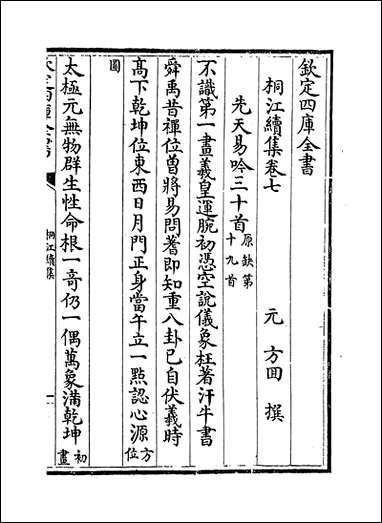 欽定四庫全書
桐江續集卷七
元 方回 撰
先天易吟三十首原缺第十九首
不識第一畫羲皇運腕初憑空說儀象枉著汗牛書
舜禹昔禪位曽將易問蓍即知重八卦已自伏羲時
髙下乾坤位東西日月門正身當午立一點認心源方位
圖
太極元無物群生性命根一竒仍一偶萬象滿乾坤初畫
桐江續集
一